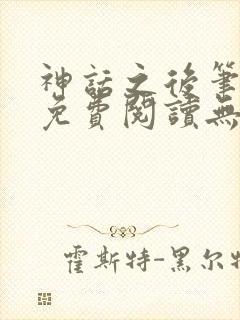 神話之後筆
免費閱讀無
霍斯特-黑尔特